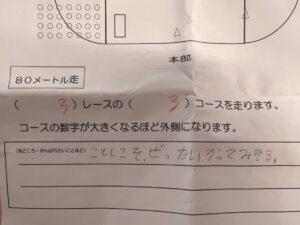 本部
80メートル走
( 3 ) レースの ( 3 ) コースを走ります。
コースの数字が大きくなるほど外側になります。
(見どころ・がんばりたいことなど) ことしこそ、ぜったいかってみせる。